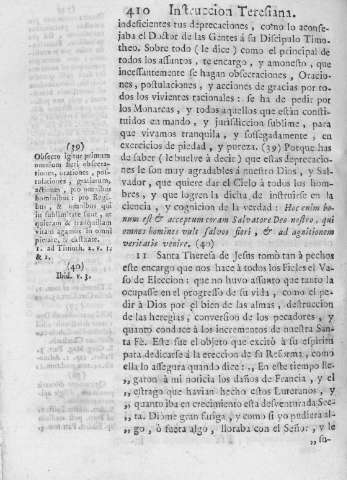 410 Instruccion Teresiana.
indeficientes tus deprecaciones, como lo aconse-
jaba el Doctor de las Gentes á su Discipulo Timo-
theo. Sobre todo (le dice) como el principal de
todos los assuntos, te encargo, y amonesto, que
incessantemente se hagan obsecraciones, Oracio-
nes, postulaciones, y acciones de gracias por to-
dos los vivientes racionales: se ha de pedir por
los Monarcas, y todos aquellos que están consti-
tuidos en mando, y jurisdiccion sublime, para
que vivamos tranquila, y sossegadamente, en
exercicios de piedad, y pureza. (39) Porque has
de saber (le buelve à decir) que estas deprecacio-
nes le son muy agradables á nuestro Dios, y Sal-
vador, que quiere dar el Cielo à todos los hom-
bres, y que logren la dicha de instruirse en la
ciencia, y cognicion de la verdad: Hoc enim bo-
num est & acceptum coram Salvatore Deo nostro, qui
omnes homines vult salvos fieri, & ad agnitionem
veritatis venire. (40)
11 Santa Theresa de Jesus tomò tan à pechos
este encargo que nos hace à todos los Fieles el Va-
so de Eleccion: que no huvo assunto que tanto la
ocupasse en el progresso de su vida, como el pe-
dir à Dios por el bien de las almas, destruccion
de las heregias, conversion de los pecadores, y
quanto conduce à los incrementos de nuestra San-
ta Fè. Este fue el objeto que excitò à su espiritu
para dedicarse à la ereccion de su Reforma, como
ella lo assegura quando dice: ,, En este tiempo lle-
,, garon à mi noticia los daños de Francia, y el
,, estrago que havian hecho estos Luteranos, y
,, quanto iba en crecimiento esta desventurada Sec-
,, ta. Dióme gran fatiga, y como si yo pudiera al-
,, go, ò fuera algo, lloraba con el Señor, y le
,, so-
(39)
Obsecro igitur primum
omnium fieri obsecra-
tiones, orationes, pos-
tulationes, gratiarum,
actiones, pro omnibus
hominibus: pro Regi-
bus, & omnibus qui
in sublimitate sunt, ut
quietam & tranquillam
vitam agamus in omni
pietate, & castitate.
1. ad Timoth. 2. v. 1.
& 2.
(40)
Ibid. v. 3.